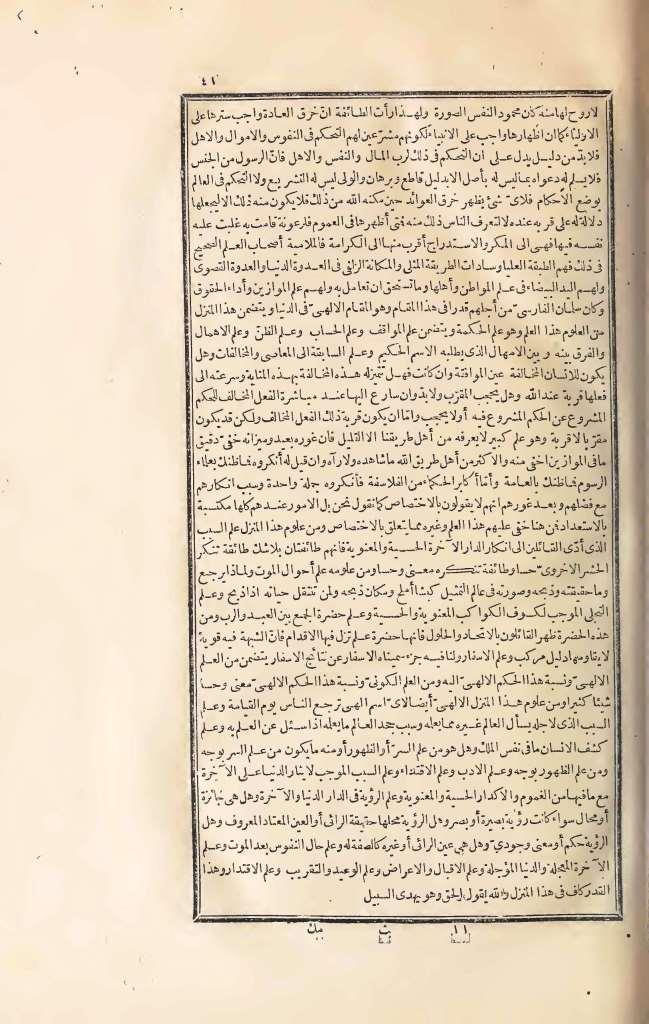 ٤١
لا روح لها منه كان محمود النفس الصورة ولهذا رأت الطائفة ان خرق العادة واجب سترها على
الاولياء كما ان اظهارها واجب على الانبياء لكونهم مشرعين لهم التحكم فى النفوس والاموال والاهل
فلا بد من دليل يدل على ان التحكم فى ذلك لرب المال والنفس والاهل فان الرسول من الجنس
فلا يسلم له دعواه بما ليس له بأصل الا بدليل قاطع وبرهان والولى ليس له التشريع ولا التحكم فى العالم
بوضع الاحكام فلاى شئ يظهر خرق العوائد حين مكنه الله من ذلك فلا يكون منه ذلك الا ليجعلها
دلالة له على قربه عنده لا لتعرف الناس ذلك منه فمتى أظهرها فى العموم فلرعونة قامت به غلبت عليه
نفسه فيها فهى الى المكر والاستدراج أقرب منها الى الكرامة فالملامية أصحاب العلم الصحيح
فى ذلك فهم الطبقة العليا وسادات الطريقة المثلى والمكانة الزلفى فى العدوة الدنيا والعدوة القصوى
ولهم اليد البيضاء فى علم المواطن وأهلها وما تستحق ان تعامل به ولهم علم الموازين وأداء الحقوق
وكان سلمان الفارسى من أجلهم قدرا فى هذا المقام وهو المقام الالهى فى الدنيا ويتضمن هذا المنزل
من العلوم هذا العلم وهو علم الحكمة ويتضمن علم المواقف وعلم الحساب وعلم الظن وعلم الاهمال
والفرق بينه وبين الامهال الذى يطلبه الاسم الحكيم وعلم السابقة الى المعاصى والمخالفات وهل
يكون للانسان المخالفة عين الموافقة وان كانت فهل تتميز له هذه المخالفة بهذه المثابة وسرعته الى
فعلها قربة عند الله وهل يحجب المقرب ولا بد وان سارع اليها عند مباشرة الفعل المخالف للحكم
المشروع عن الحكم المشروع فيه أو لا يحجب واما ان يكون قربة ذلك الفعل المخالف ولكن قد يكون
مقربا لا قربة وهو علم كبير لا يعرفه من أهل طريقنا الا القليل فان غوره بعيد وميزانه خفى دقيق
ما فى الموازين أخفى منه والاكثر من أهل طريق الله ما شاهده ولا رآه وان قيل له أنكره فما ظنك بعلماء
الرسوم فما ظنك بالعامة وأما أكابر الحكماء من الفلاسفة فأنكروه جملة واحدة وسبب انكارهم
مع فضلهم وبعد غورهم انهم لا يقولون بالاختصاص كما نقول نحن بل الامور عندهم كلها مكتسبة
بالاستعداد فمن هنا خفى عليهم هذا العلم وغيره مما يتعلق بالاختصاص ومن علوم هذا المنزل علم السبب
الذى أدى القائلين الى انكار الدار الآخرة الحسية والمعنوية فانهم طائفتان بلا شك طائفة تنكر
الحشر الاخروى حسا وطائفة تنكره معنى وحسا ومن علومه علم أحوال الموت ولماذا يرجع
وما حقيقته وذبحه وصورته فى عالم التمثيل كبشا أملح ومكان ذبحه ولمن تنتقل حياته اذا ذبح وعلم
التجلى الموجب لكسوف الكواكب المعنوية والحسية وعلم حضرة الجمع بين العبد والرب ومن
هذه الحضرة ظهر القائلون بالاتحاد والحلول فانها حضرة علم تزل فيها الاقدام فان الشبهة فيه قوية
لا يقاومها دليل مركب وعلم الاسفار ولنا فيه جزء سميناه الاسفار عن نتائج الاسفار يتضمن من العلم
الالهى ونسبة هذا الحكم الالهى اليه ومن العلم الكونى ونسبة هذا الحكم الالهى معنى وحسا
شيئا كثيرا ومن علوم هذا المنزل الالهى أيضا لاى اسم الهى ترجع الناس يوم القيامة وعلم
السبب الذى لاجله يسأل العالم غيره مما يعلمه وسبب جحد العالم ما يعلمه اذا سئل عن العلم به وعلم
كشف الانسان ما فى نفس الملك وهل هو من علم السر أو الظهور أو منه ما يكون من علم السر بوجه
ومن علم الظهور بوجه وعلم الادب وعلم الاقتداء وعلم السبب الموجب لايثار الدنيا على الآخرة
مع ما فيها من الغموم والاكدار الحسية والمعنوية وعلم الرؤية فى الدار الدنيا والآخرة وهل هى جائزة
أو محال سواء كانت رؤية بصيرة أو بصر وهل الرؤية محلها حقيقة الرائى أو العين المعتاد المعروف وهل
الرؤية حكم أو معنى وجودي وهل هى عين الرائى أو غيره كالصفة له وعلم حال النفوس بعد الموت وعلم
الآخرة المعجلة والدنيا المؤجلة وعلم الاقبال والاعراض وعلم الوعيد والتقريب وعلم الاقتدار وهذا
القدر كاف فى هذا المنزل والله يقول الحق وهو يهدى السبيل
١١ ت مك